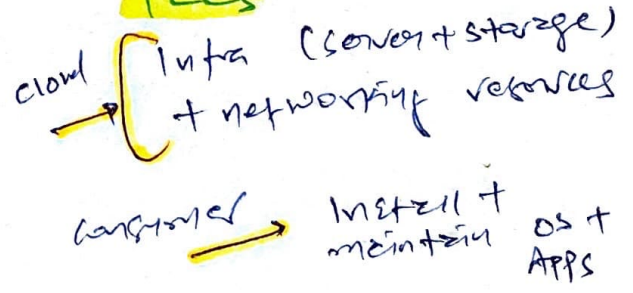 cloud Infra (server + storage)
+ networking resources
consumer Install +
maintain OS +
APPS